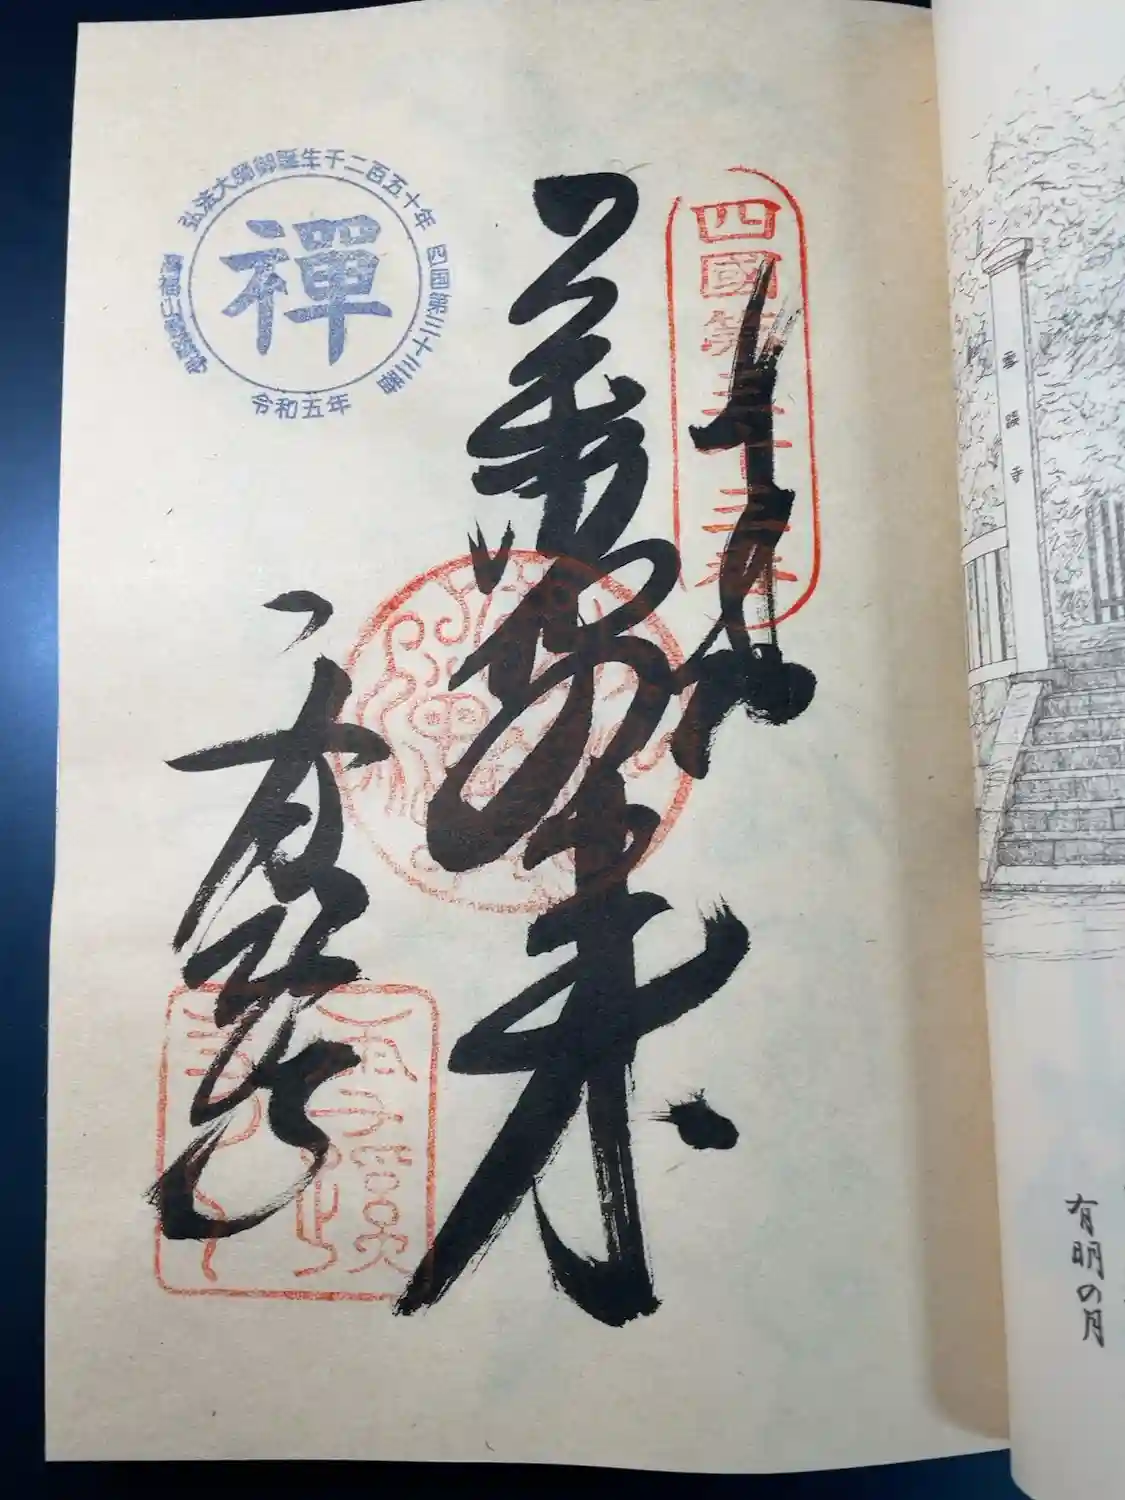 弘法大師御誕生千二百五十年
四国第三十三番
高福山雪蹊寺
禪
令和五年
四國第三十三番
奉納
薬師如来
雪蹊寺
有明の月